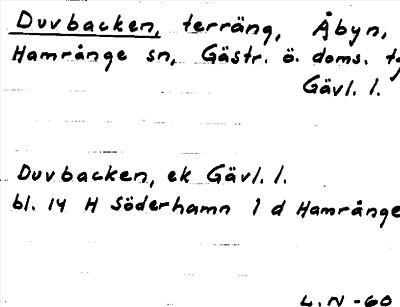 Duvbacken, terräng, Åbyn,
Hamrånge sn, Gästr. ö. doms. tg
Gävl. l.
Duvbacken, ek Gävl. l.
bl. 14 H Söderhamn 1 d Hamrånge
L.N -60